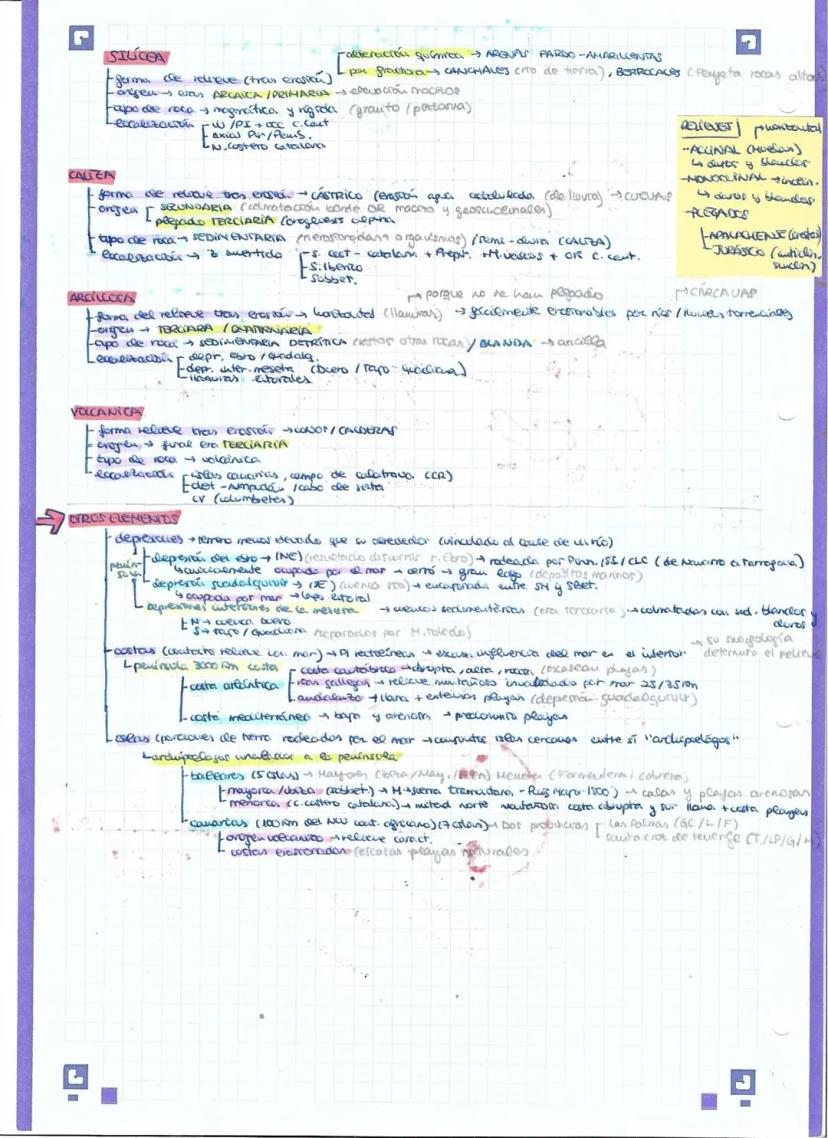 SILÍCEA
alteración química → ARENAS PARDO-AMARILLENTAS
por fractura → CANCHALES (río de tierra), BERROCALES (
forma de relieve (tras erosión)
origen → eras ARCAICA / PRIMARIA → elevación
tipo de roca → magmática y rígida (granito /
localización
W / PI + OCC C. Cant
axial Pir / Penib.
N. costero catalana
RELIEVES horizontal
- ACLINAL
↳ duros y blandos
- MONOCLINAL → inclin.
↳ duros y blandos
- PLEGADOS
APALACHENSE (crestas)
JURÁSICO (anticlin. sinclin)
CALIZA
forma de relieve tras erosión → CÁSTRICO (erosión agua acidulada (de lluvia) → CUEVAS
origen
SECUNDARIA (colmatación borde OR macizo y geosinclinales)
plegado TERCIARIA (orogénesis alpina
tipo de roca → SEDIMENTARIA ( + organismos) / semi-dura (CALIZA)
localización → Z invertida
S. cost-catalana + Prepir. + M. vascos + OR C. cant.
S. Ibérico
Subbét.
ARCILLOSA
→ porque no se han plegado
→ CÁRCAVAS
forma del relieve tras erosión → horizontal (llanuras) → fácilmente erosionables por ríos / lluvias torrenciales
origen → TERCIARIA / CUATERNARIA
tipo de roca → SEDIMENTARIA DETRÍTICA (restos otras rocas) / BLANDA → arcilla
localización
depr. ebro / guadalq.
depr. inter. meseta (Duero / Tajo-guadiana)
llanuras litorales
VOLCÁNICA
forma relieve tras erosión → CONOS / CALDERAS
origen → final era TERCIARIA
tipo de roca → volcánica
localización
islas canarias, campo de calatrava (CR)
olot-Ampurdán / cabo de gata
CV (columbretes)
→ OTROS ELEMENTOS
depresiones → terreno menos elevado que su alrededor (vinculado al cauce de un río)
península
depresión del ebro → (NE) (resultado discurrir r. Ebro) → rodeada por Pirin. / SI / CLC (de Navarra a Tarragona)
↳ ocupada por el mar → cerró → gran lago (depósitos marinos)
depresión guadalquivir → (SE) (cuenca río) → encajonada entre SM y SBét.
↳ ocupada por mar → lago litoral
depresiones interiores de la meseta → cuencas sedimentarias (era terciaria) → colmatadas con sed. blandos y duros
N → cuenca Duero
S → tajo / guadiana (separados por M. Toledo)
costas (contacto relieve con mar) → PI rectilíneas → escasa influencia del mar en el interior → su morfología determina el relieve
↳ península 3000 km costa
costa atlántica
costa cantábrica → abrupta, alta, rocosa (escasean playas)
rías gallegas → relieve montañoso invadido por mar 25/35km
andaluza → llana + extensas playas (depresión guadalquivir)
costa mediterránea → baja y arenosa → predominio playas
islas (porciones de tierra rodeadas por el mar → conjuntos islas cercanas entre sí "archipiélagos"
↳ archipiélagos vinculados a la península
baleares (5 islas) → Mayores (Ibiza / May. / Men) Menores (Formentera / cabrera)
mayorca / ibiza (subbét) → M → sierra tramuntana - Puig Mayor-1500) → calas y playas arenosas
menorca (c. costero catalano) → mitad norte montañosa costa abrupta y sur llana + costa playera
canarias (100km del NW cont. africano) (7 islas) → Dos provincias
Las Palmas (GC / L / F)
Santa cruz de tenerife (T / LP / G / H)
origen volcánico → relieve caract.
costas erosionadas (escasas playas naturales